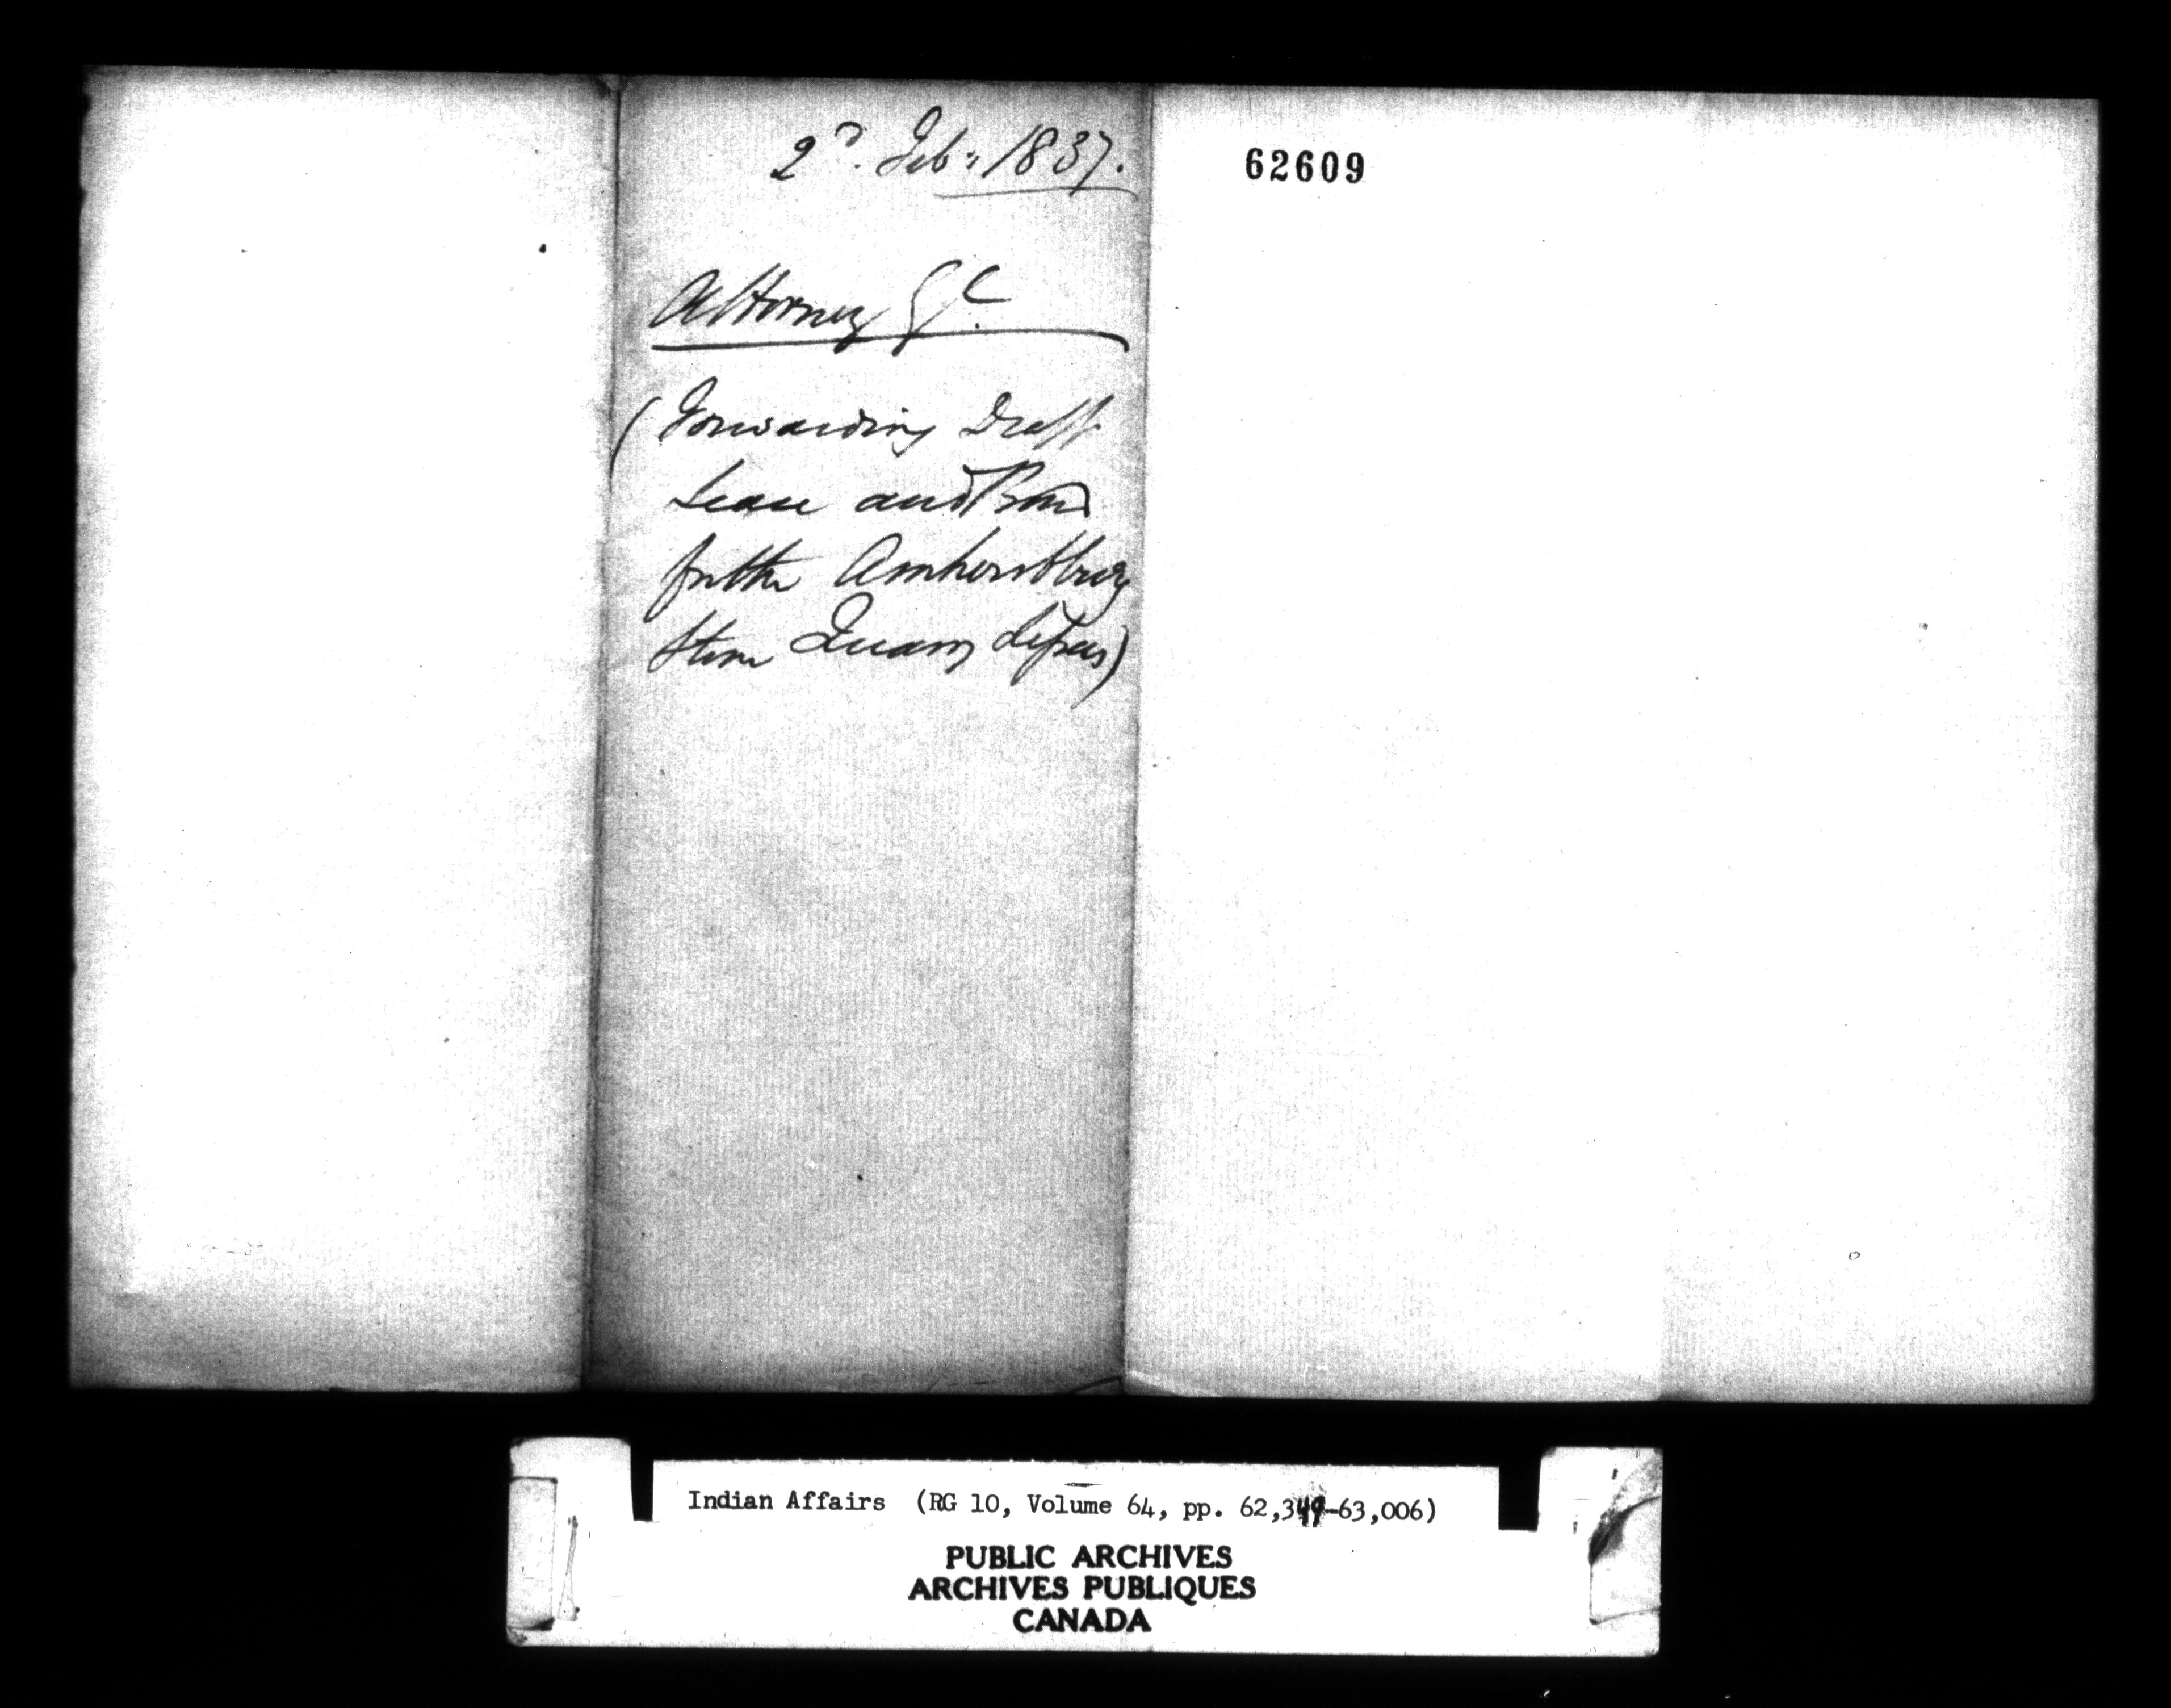 2d. Feb: 1837.
Attorney Gl.
(Forwarding Draft
Lease and Bond
for the Amherstburg
Stone Quarry Lessees)
62609
Indian Affairs (RG 10, Volume 64, pp. 62,349-63,006)
PUBLIC ARCHIVES
ARCHIVES PUBLIQUES
CANADA